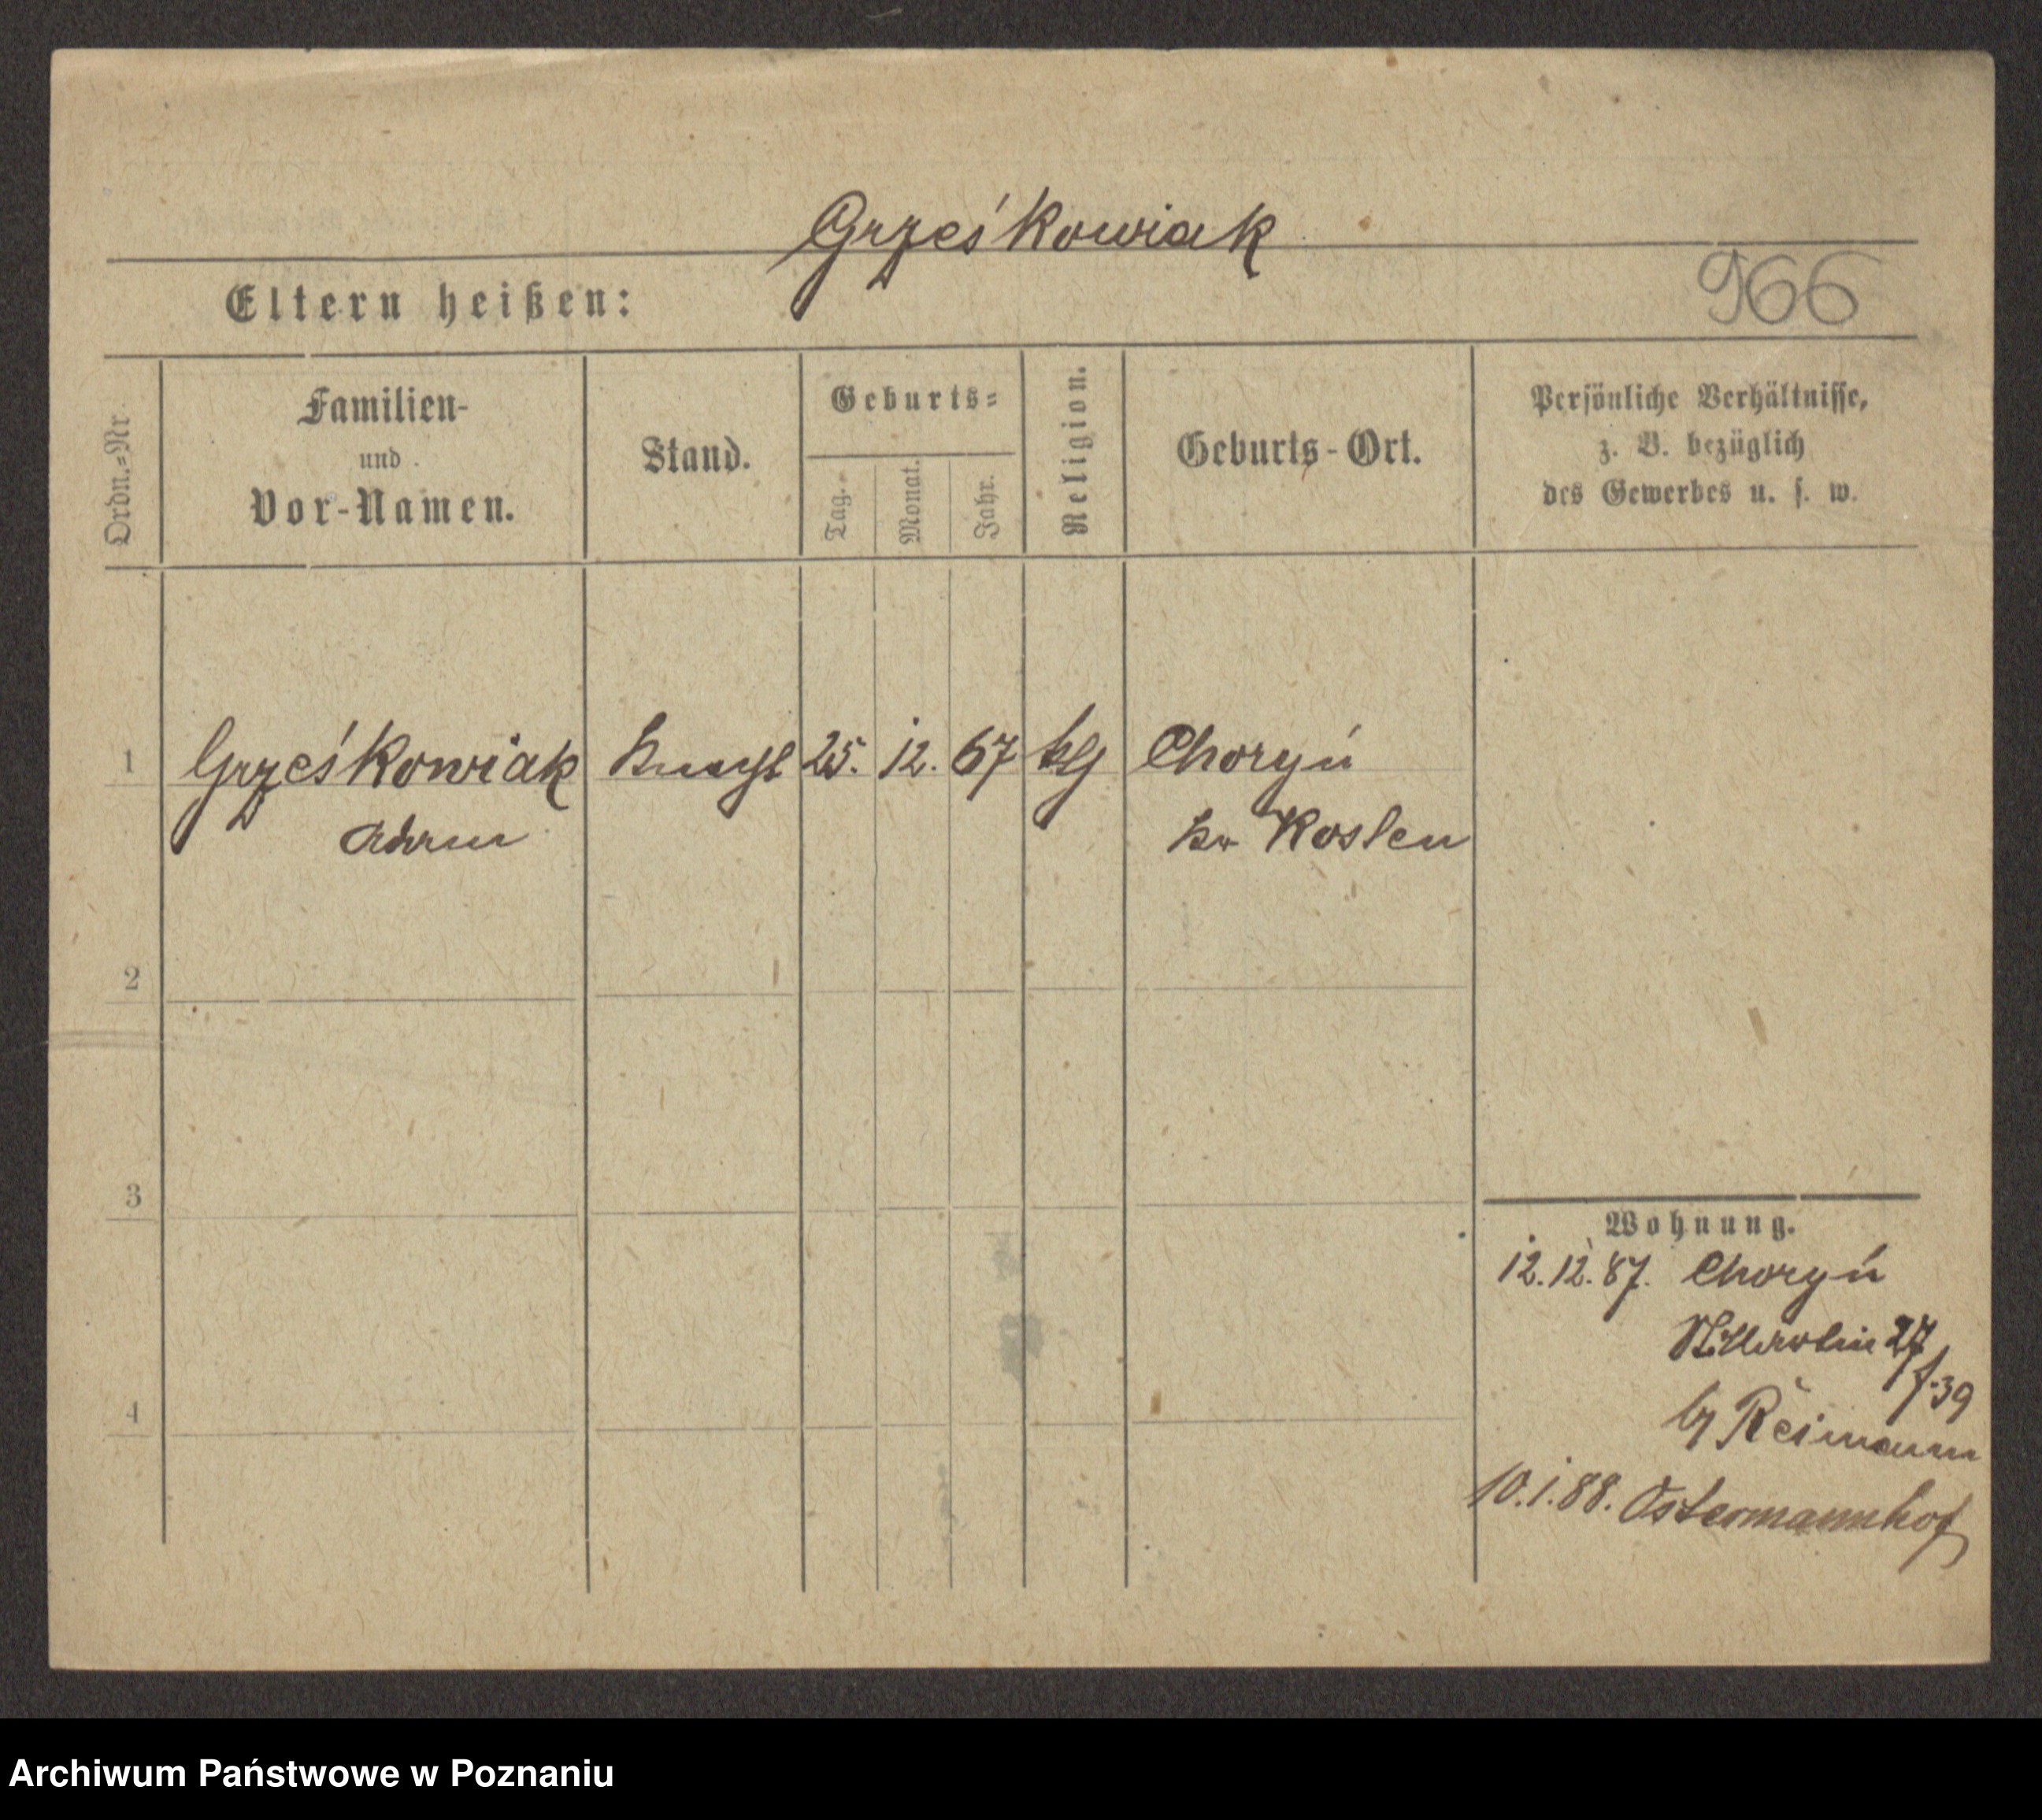 Grześkowiak
Eltern heißen:
966
Ordn.=Nr.
Familien-
und
Vor-Namen.
Stand.
Geburts=
Tag.
Monat.
Jahr.
Religion.
Geburts-Ort.
Persönliche Verhältnisse,
z. B. bezüglich
des Gewerbes u. s. w.
1 Grześkowiak Knecht 25. 12. 67 klg Choryń
Adam Kr Kosten
2
3
4
Wohnung.
12.12.87. Choryń
27
f. 39
Reimann
10.1.88. Ostermannhof
Archiwum Państwowe w Poznaniu